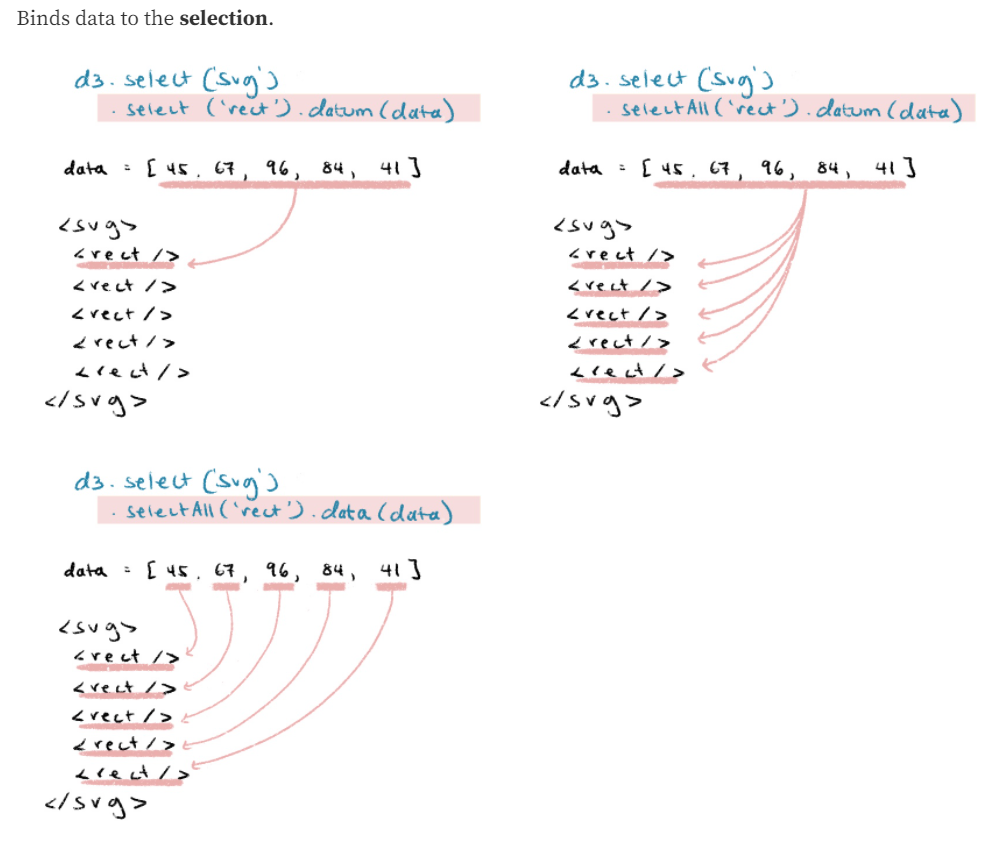 Binds data to the selection.
d3. select ('svg')
. select ('rect'). datum (data)
data = [ 45. 67, 96, 84, 41 ]
<svg>
<rect />
<rect />
<rect />
<rect />
<rect />
</svg>
d3. select ('svg')
. selectAll ('rect'). datum (data)
data = [ 45. 67, 96, 84, 41 ]
<svg>
<rect />
<rect />
<rect />
<rect />
<rect />
</svg>
d3. select ('svg')
. selectAll ('rect'). data (data)
data = [ 45. 67, 96, 84, 41 ]
<svg>
<rect />
<rect />
<rect />
<rect />
<rect />
</svg>